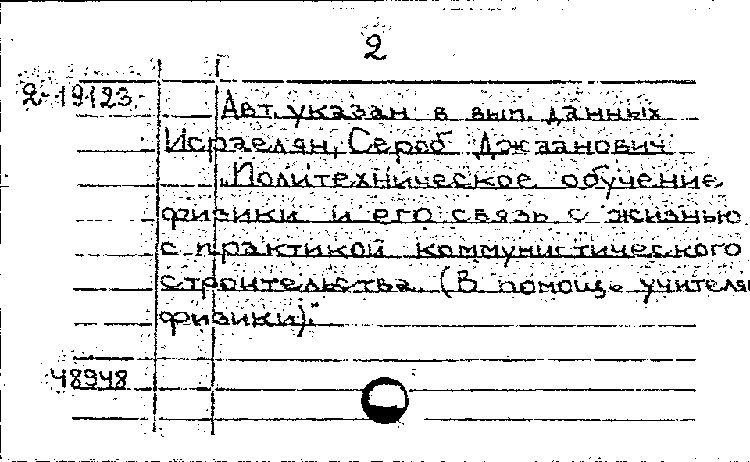 2
2-19123
Авт. указан в вып. данных
Исраелян, Сероб Джаанович
„Политехническое обучение
физики и его связь с жизнью
с практикой коммунистического
строительства. (В помощь учителям
физики)."
48948